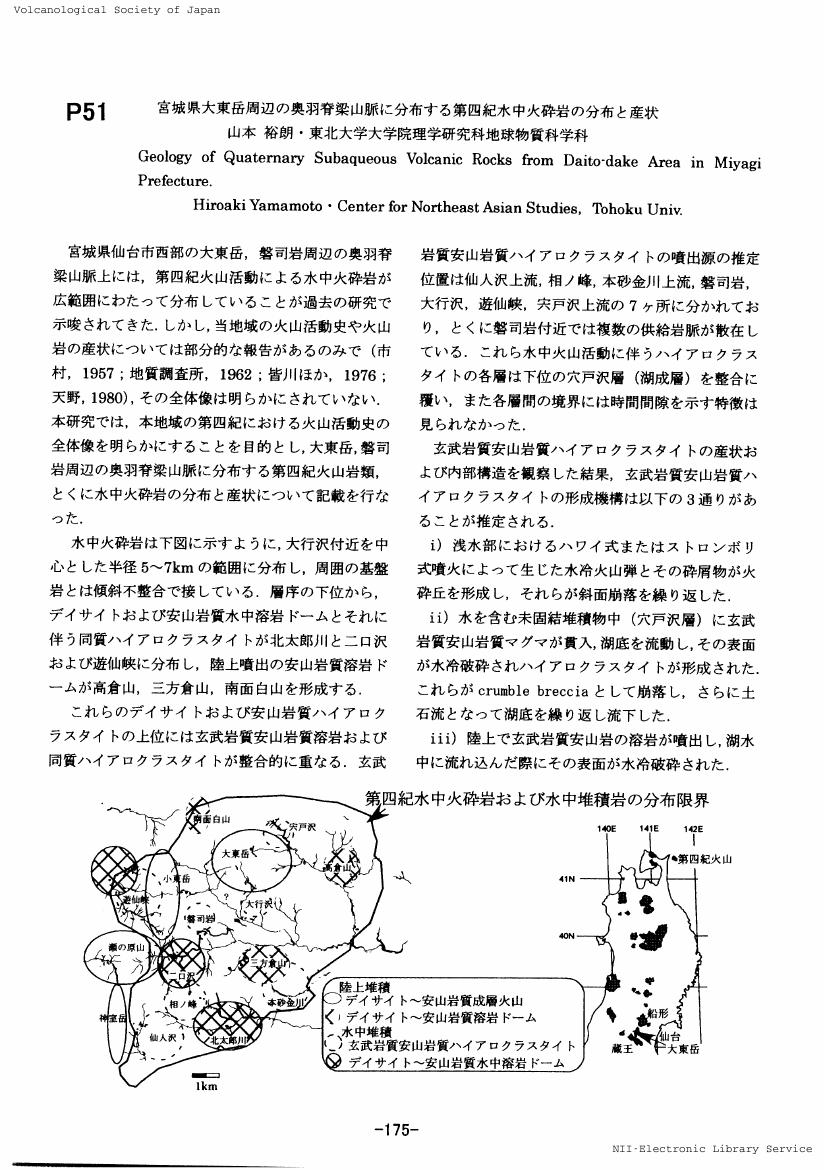 Volcanological Society of Japan
P51
宮城県大東岳周辺の奥羽脊梁山脈に分布する第四紀水中火砕岩の分布と産状
山本 裕朗・東北大学大学院理学研究科地球物質科学科
Geology of Quaternary Subaqueous Volcanic Rocks from Daito-dake Area in Miyagi
Prefecture.
Hiroaki Yamamoto・Center for Northeast Asian Studies, Tohoku Univ.
宮城県仙台市西部の大東岳，磐司岩周辺の奥羽脊
梁山脈上には，第四紀火山活動による水中火砕岩が
広範囲にわたって分布していることが過去の研究で
示唆されてきた．しかし，当地域の火山活動史や火山
岩の産状については部分的な報告があるのみで（市
村，1957；地質調査所，1962；皆川ほか，1976；
天野，1980），その全体像は明らかにされていない．
本研究では，本地域の第四紀における火山活動史の
全体像を明らかにすることを目的とし，大東岳，磐司
岩周辺の奥羽脊梁山脈に分布する第四紀火山岩類，
とくに水中火砕岩の分布と産状について記載を行な
った．
水中火砕岩は下図に示すように，大行沢付近を中
心とした半径5〜7kmの範囲に分布し，周囲の基盤
岩とは傾斜不整合で接している．層序の下位から，
デイサイトおよび安山岩質水中溶岩ドームとそれに
伴う同質ハイアロクラスタイトが北太郎川と二口沢
および遊仙峡に分布し，陸上噴出の安山岩質溶岩ド
ームが高倉山，三方倉山，南面白山を形成する．
これらのデイサイトおよび安山岩質ハイアロク
ラスタイトの上位には玄武岩質安山岩質溶岩および
同質ハイアロクラスタイトが整合的に重なる．玄武
岩質安山岩質ハイアロクラスタイトの噴出源の推定
位置は仙人沢上流，相ノ峰，本砂金川上流，磐司岩，
大行沢，遊仙峡，宍戸沢上流の7ヶ所に分かれてお
り，とくに磐司岩付近では複数の供給岩脈が散在し
ている．これら水中火山活動に伴うハイアロクラス
タイトの各層は下位の穴戸沢層（湖成層）を整合に
覆い，また各層間の境界には時間間隙を示す特徴は
見られなかった．
玄武岩質安山岩質ハイアロクラスタイトの産状お
よび内部構造を観察した結果，玄武岩質安山岩質ハ
イアロクラスタイトの形成機構は以下の3通りがあ
ることが推定される．
i）浅水部におけるハワイ式またはストロンボリ
式噴火によって生じた水冷火山弾とその砕屑物が火
砕丘を形成し，それらが斜面崩落を繰り返した．
ii）水を含む未固結堆積物中（穴戸沢層）に玄武
岩質安山岩質マグマが貫入，湖底を流動し，その表面
が水冷破砕されハイアロクラスタイトが形成された．
これらがcrumble brecciaとして崩落し，さらに土
石流となって湖底を繰り返し流下した．
iii）陸上で玄武岩質安山岩の溶岩が噴出し，湖水
中に流れ込んだ際にその表面が水冷破砕された．
第四紀水中火砕岩および水中堆積岩の分布限界
南面白山
宍戸沢
大東岳
高倉山
小東岳
遊仙峡
?
大行沢
磐司岩
瀬の原山
二口沢
三方倉山
相ノ峰
本砂金川
神室岳
仙人沢
北太郎川
1km
陸上堆積
デイサイト〜安山岩質成層火山
デイサイト〜安山岩質溶岩ドーム
水中堆積
玄武岩質安山岩質ハイアロクラスタイト
デイサイト〜安山岩質水中溶岩ドーム
140E 141E 142E
第四紀火山
41N
40N
船形
仙台
蔵王
大東岳
-175-
NII-Electronic Library Service